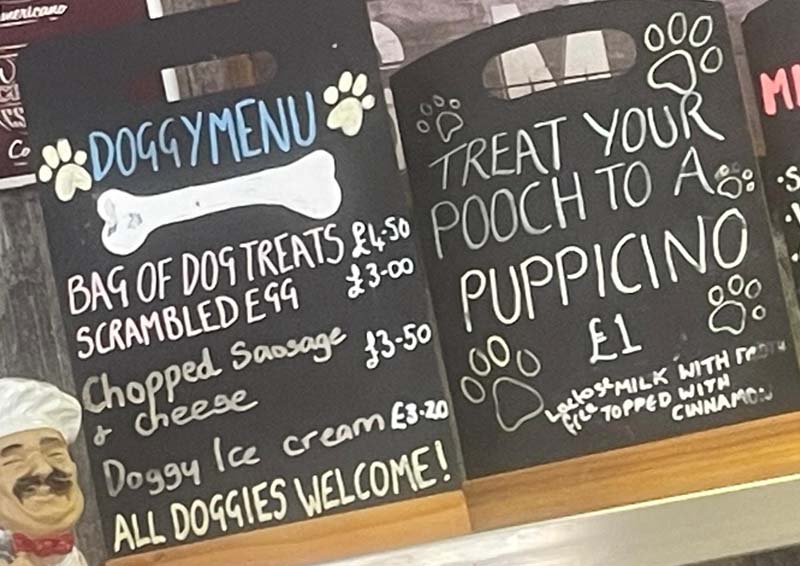 mericano
DOGGYMENU
BAG OF DOG TREATS £4.50
SCRAMBLED EGG £3.00
Chopped Sausage £3.50
& cheese
Doggy Ice cream £3.20
ALL DOGGIES WELCOME!
TREAT YOUR
POOCH TO A
PUPPICINO
£1
Lactose free MILK WITH FROTH
TOPPED WITH
CINNAMON